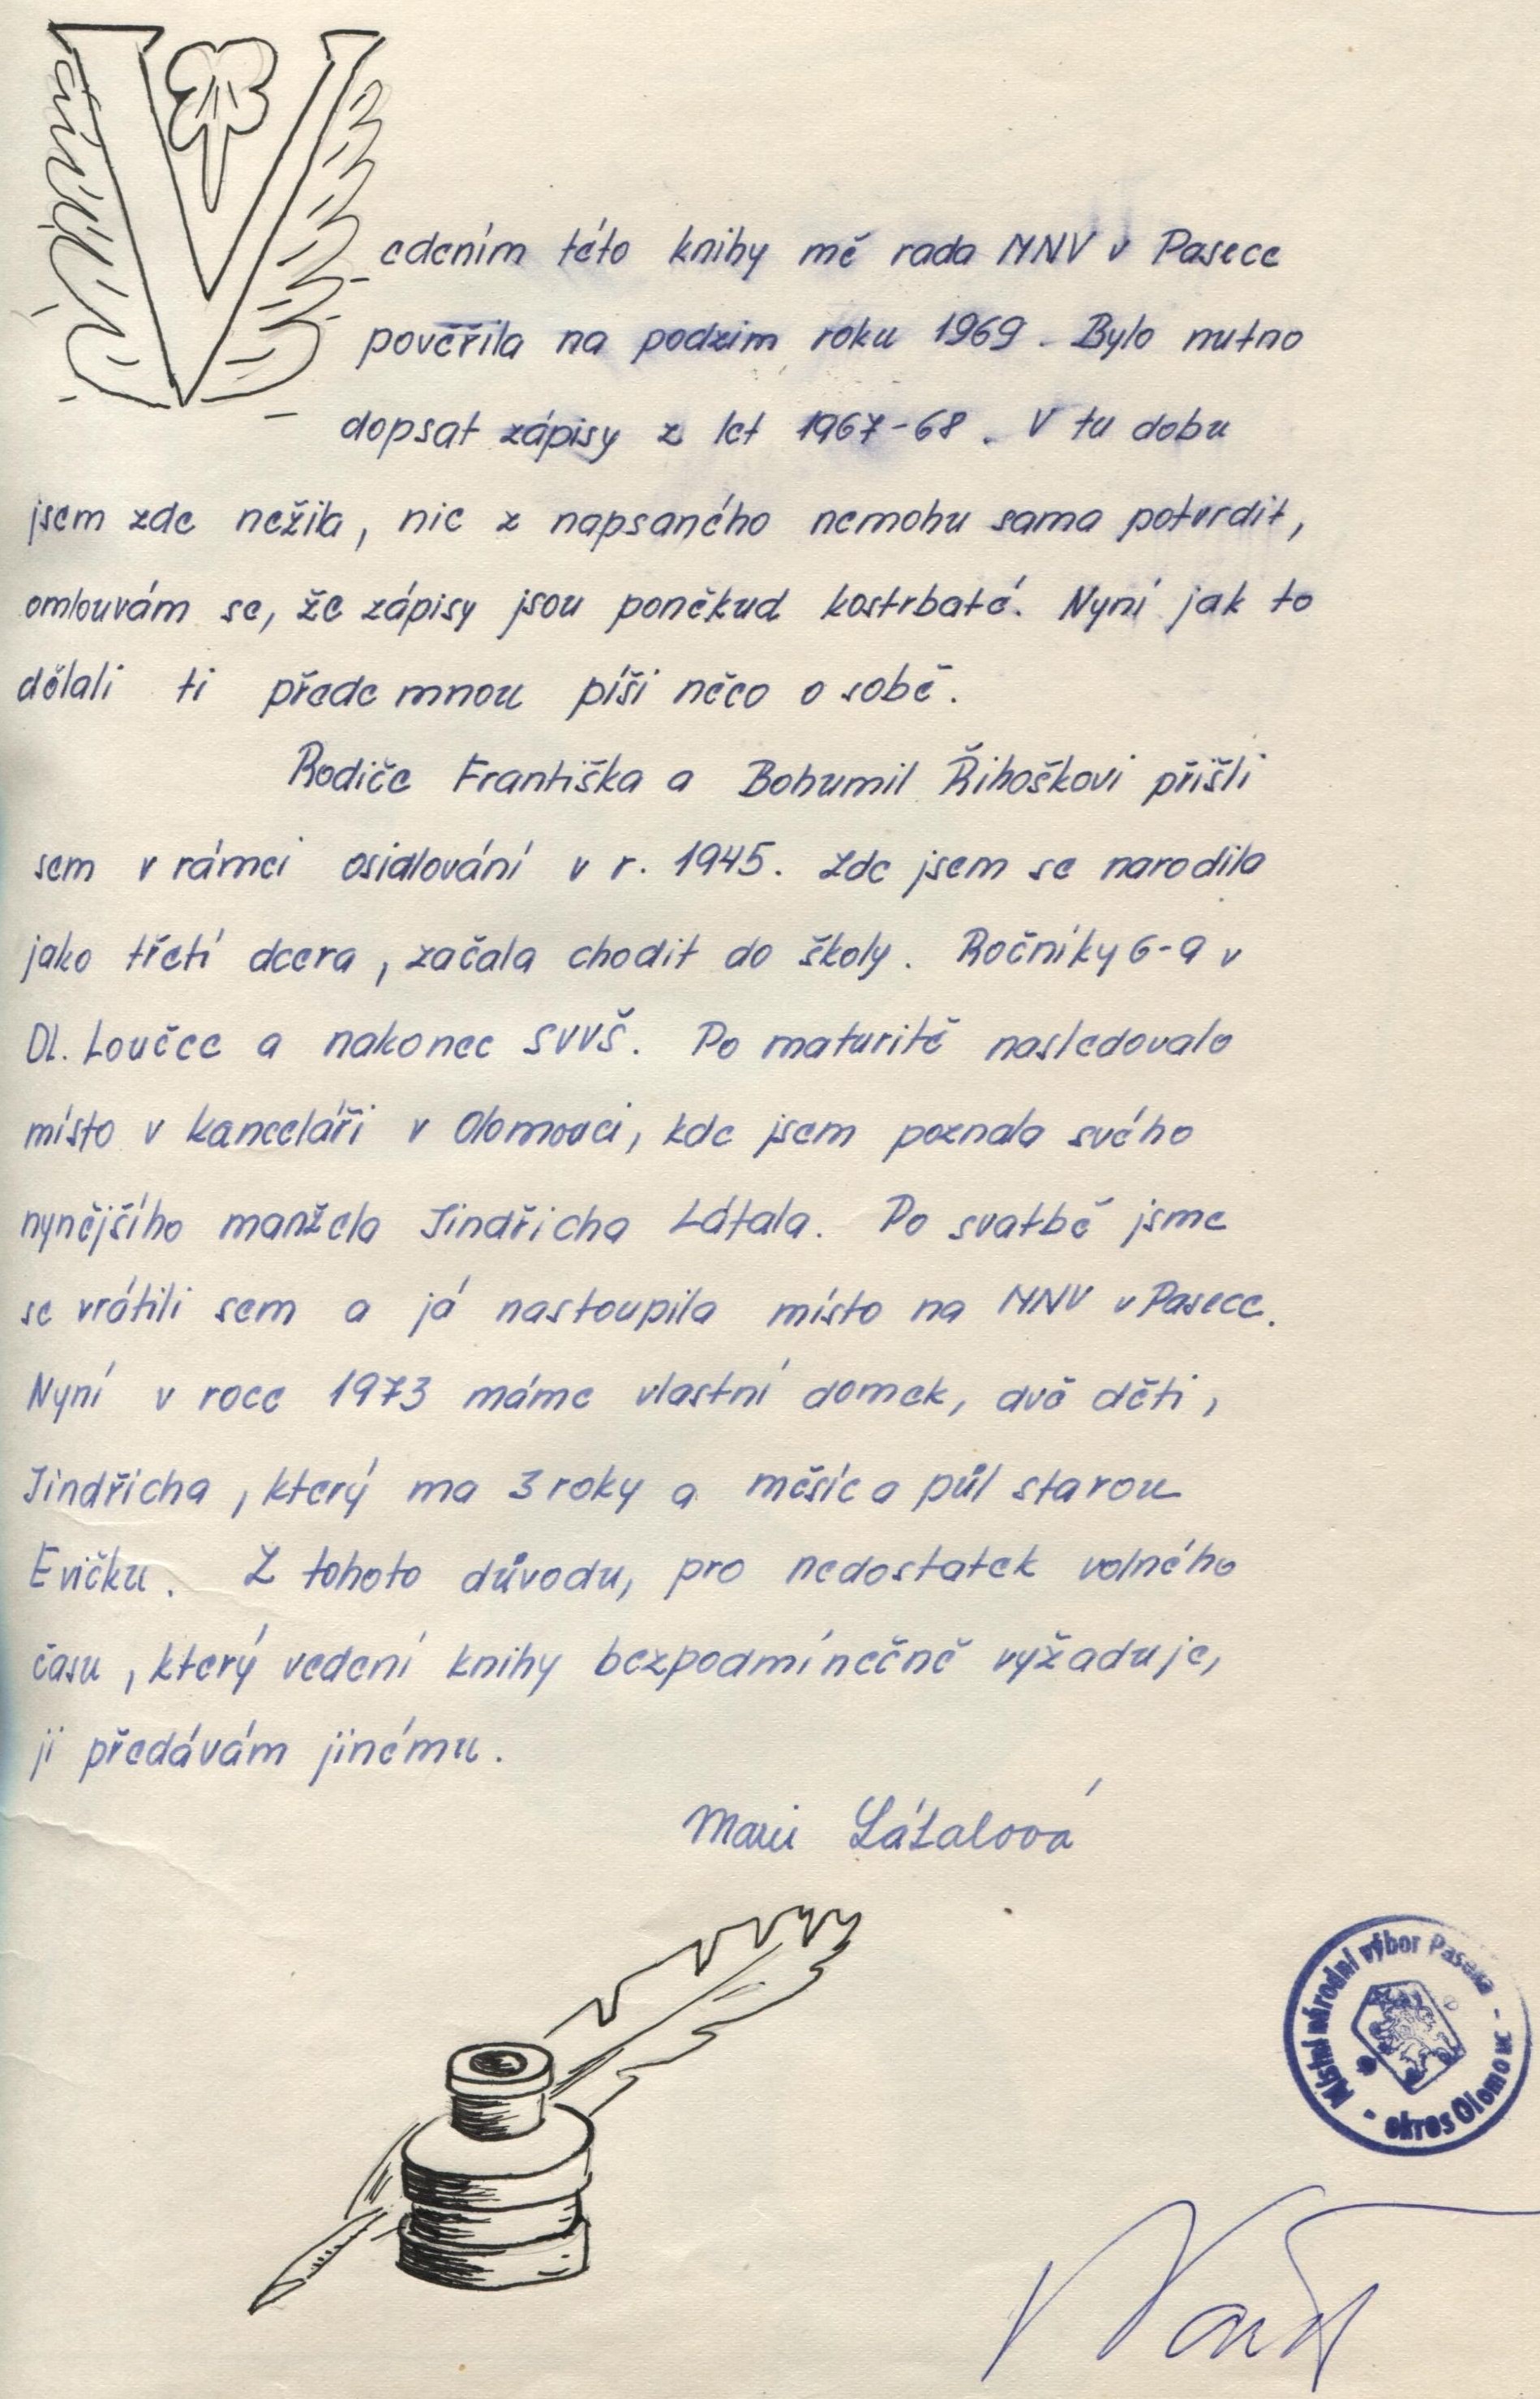 Vedením této knihy mě rada MNV v Pasece
pověřila na podzim roku 1969. Bylo nutno
dopsat zápisy z let 1967-68. V tu dobu
jsem zde nežila, nic z napsaného nemohu sama potvrdit,
omlouvám se, že zápisy jsou poněkud kostrbaté. Nyní jak to
dělali ti přede mnou píši něco o sobě.
Rodiče Františka a Bohumil Řihoškovi přišli
sem v rámci osidlování v r. 1945. Zde jsem se narodila
jako třetí dcera, začala chodit do školy. Ročníky 6-9 v
Dl. Loučce a nakonec SVVŠ. Po maturitě nasledovalo
místo v kanceláři v Olomouci, kde jsem poznala svého
nynějšího manžela Jindřicha Látala. Po svatbě jsme
se vrátili sem a já nastoupila místo na MNV v Pasece.
Nyní v roce 1973 máme vlastní domek, dvě děti,
Jindřicha, který ma 3 roky a měsíc a půl starou
Evičku. Z tohoto důvodu, pro nedostatek volného
času, který vedení knihy bezpodmínečně vyžaduje,
ji předávám jinému.
Marie Látalová
Místní národní výbor Paseka
- okres Olomouc -